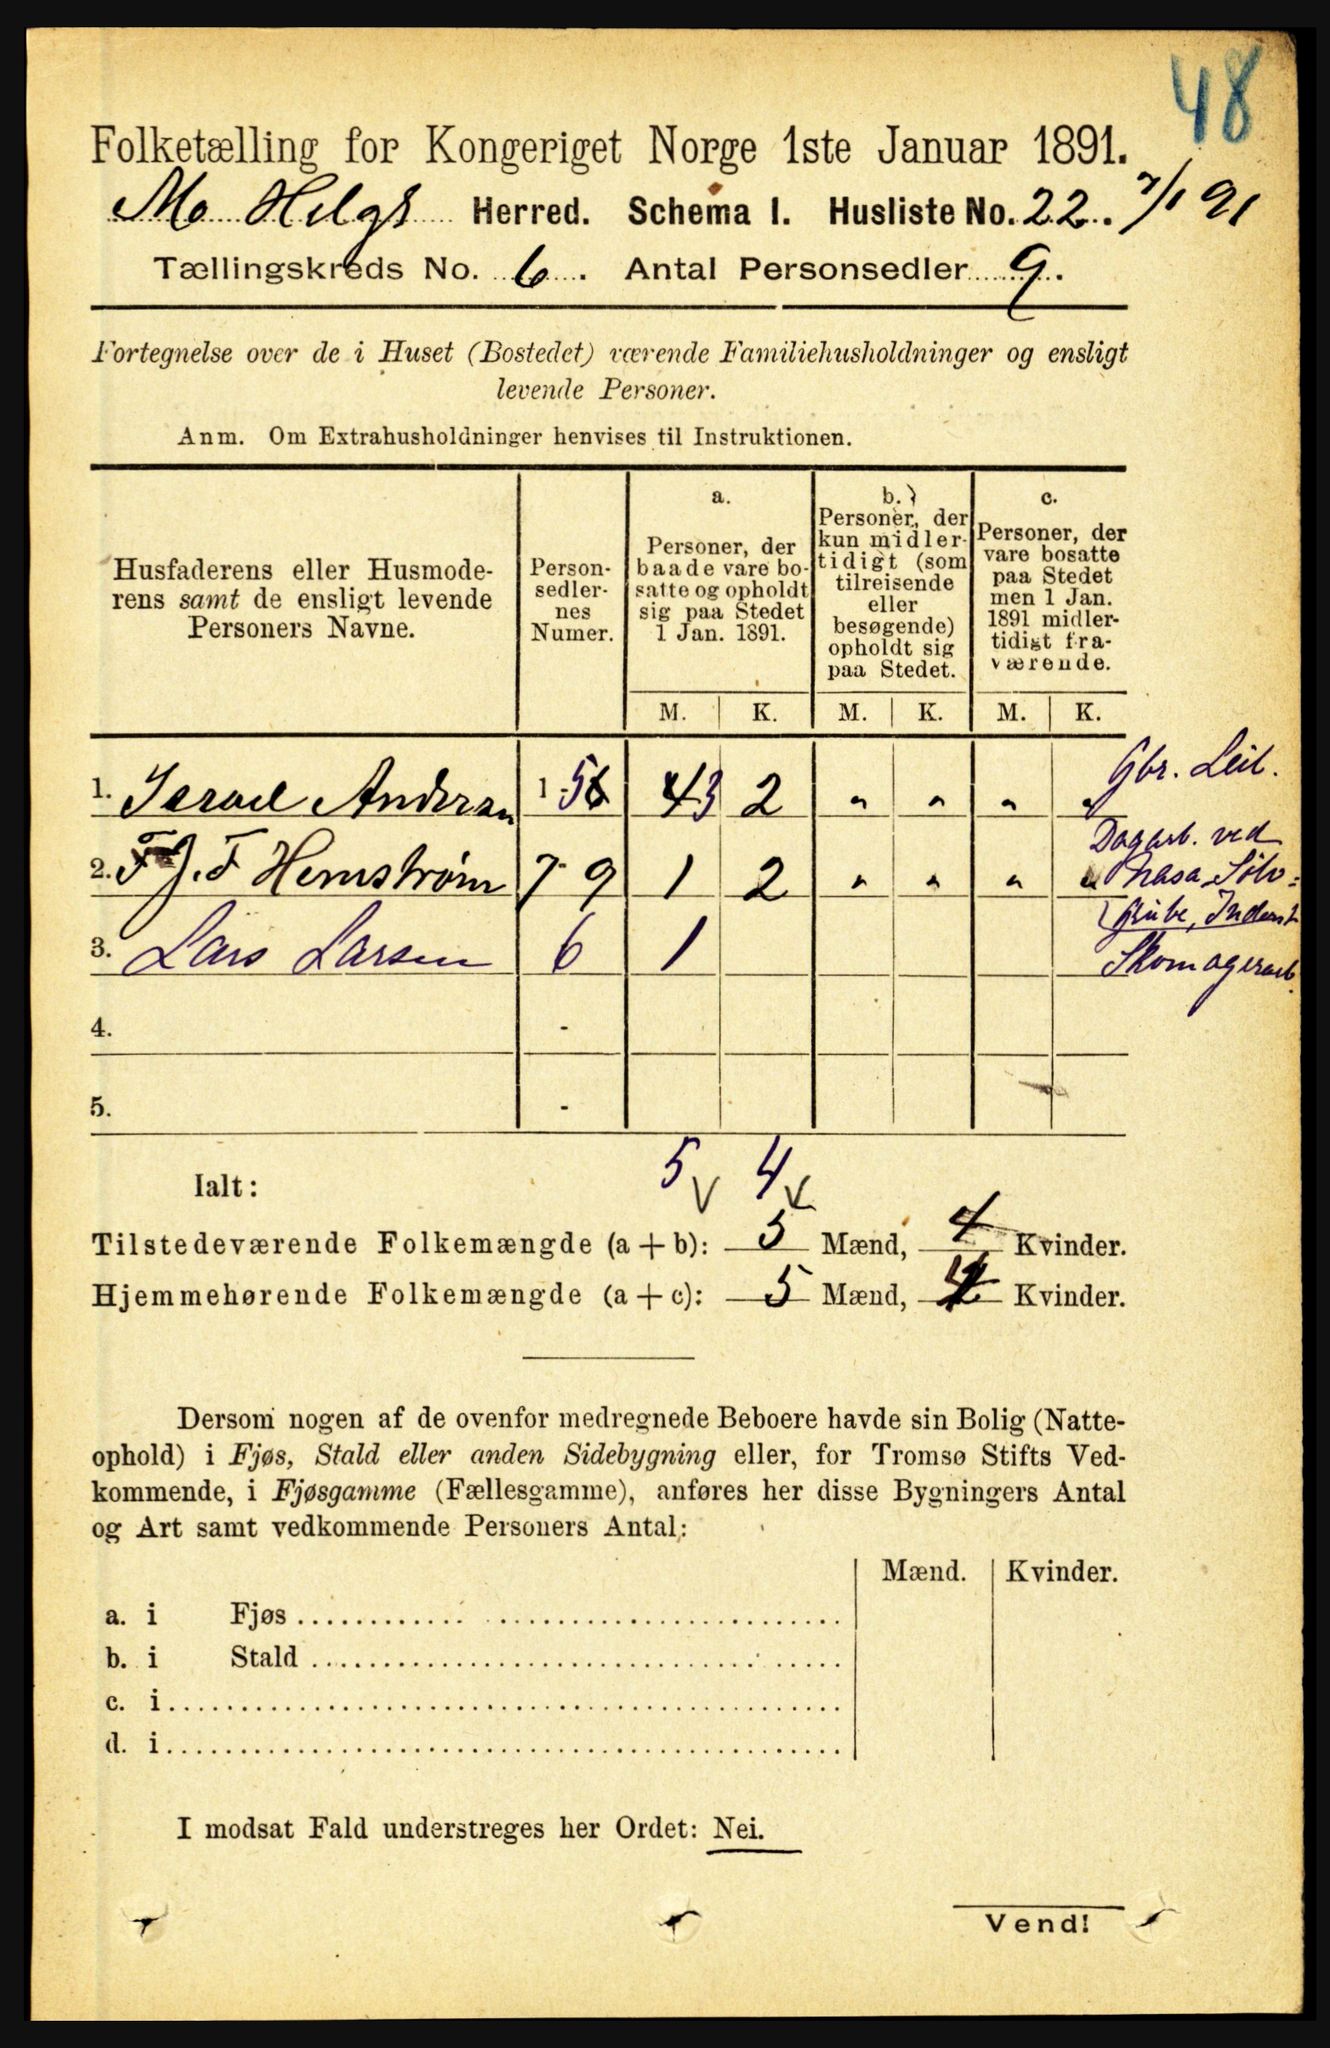 48
Folketælling for Kongeriget Norge 1ste Januar 1891.
Mo Helgl Herred. Schema I. Husliste No. 22. 7/1 91
Tællingskreds No. 6. Antal Personsedler 9.
Fortegnelse over de i Huset (Bostedet) værende Familiehusholdninger og ensligt
levende Personer.
Anm. Om Extrahusholdninger henvises til Instruktionen.
Husfaderens eller Husmode-
rens samt de ensligt levende
Personers Navne.
Person-
sedler-
nes
Numer.
a.
Personer, der
baade vare bo-
satte og opholdt
sig paa Stedet
1 Jan. 1891.
b.
Personer, der
kun midler-
tidigt (som
tilreisende
eller
besøgende)
opholdt sig
paa Stedet.
c.
Personer, der
vare bosatte
paa Stedet
men 1 Jan.
1891 midler-
tidigt fra-
værende.
M. K. M. K. M. K.
1. Israel Andersen 1 - 5 3 2 " " " " Gbr. Leil.
2. F. J. F Hemstrøm 7 - 9 1 2 " " " " Dagarb. ved
Nasa Sølv=
Grube, Inderst
3. Lars Larsen 6 1 Skomagerarb.
4. -
5. -
Ialt: 5 4
Tilstedeværende Folkemængde (a + b): 5 Mænd, 4 Kvinder.
Hjemmehørende Folkemængde (a + c): 5 Mænd, 4 Kvinder.
Dersom nogen af de ovenfor medregnede Beboere havde sin Bolig (Natte-
ophold) i Fjøs, Stald eller anden Sidebygning eller, for Tromsø Stifts Ved-
kommende, i Fjøsgamme (Fællesgamme), anføres her disse Bygningers Antal
og Art samt vedkommende Personers Antal:
Mænd. Kvinder.
a. i Fjøs
b. i Stald
c. i
d. i
I modsat Fald understreges her Ordet: Nei.
Vend!